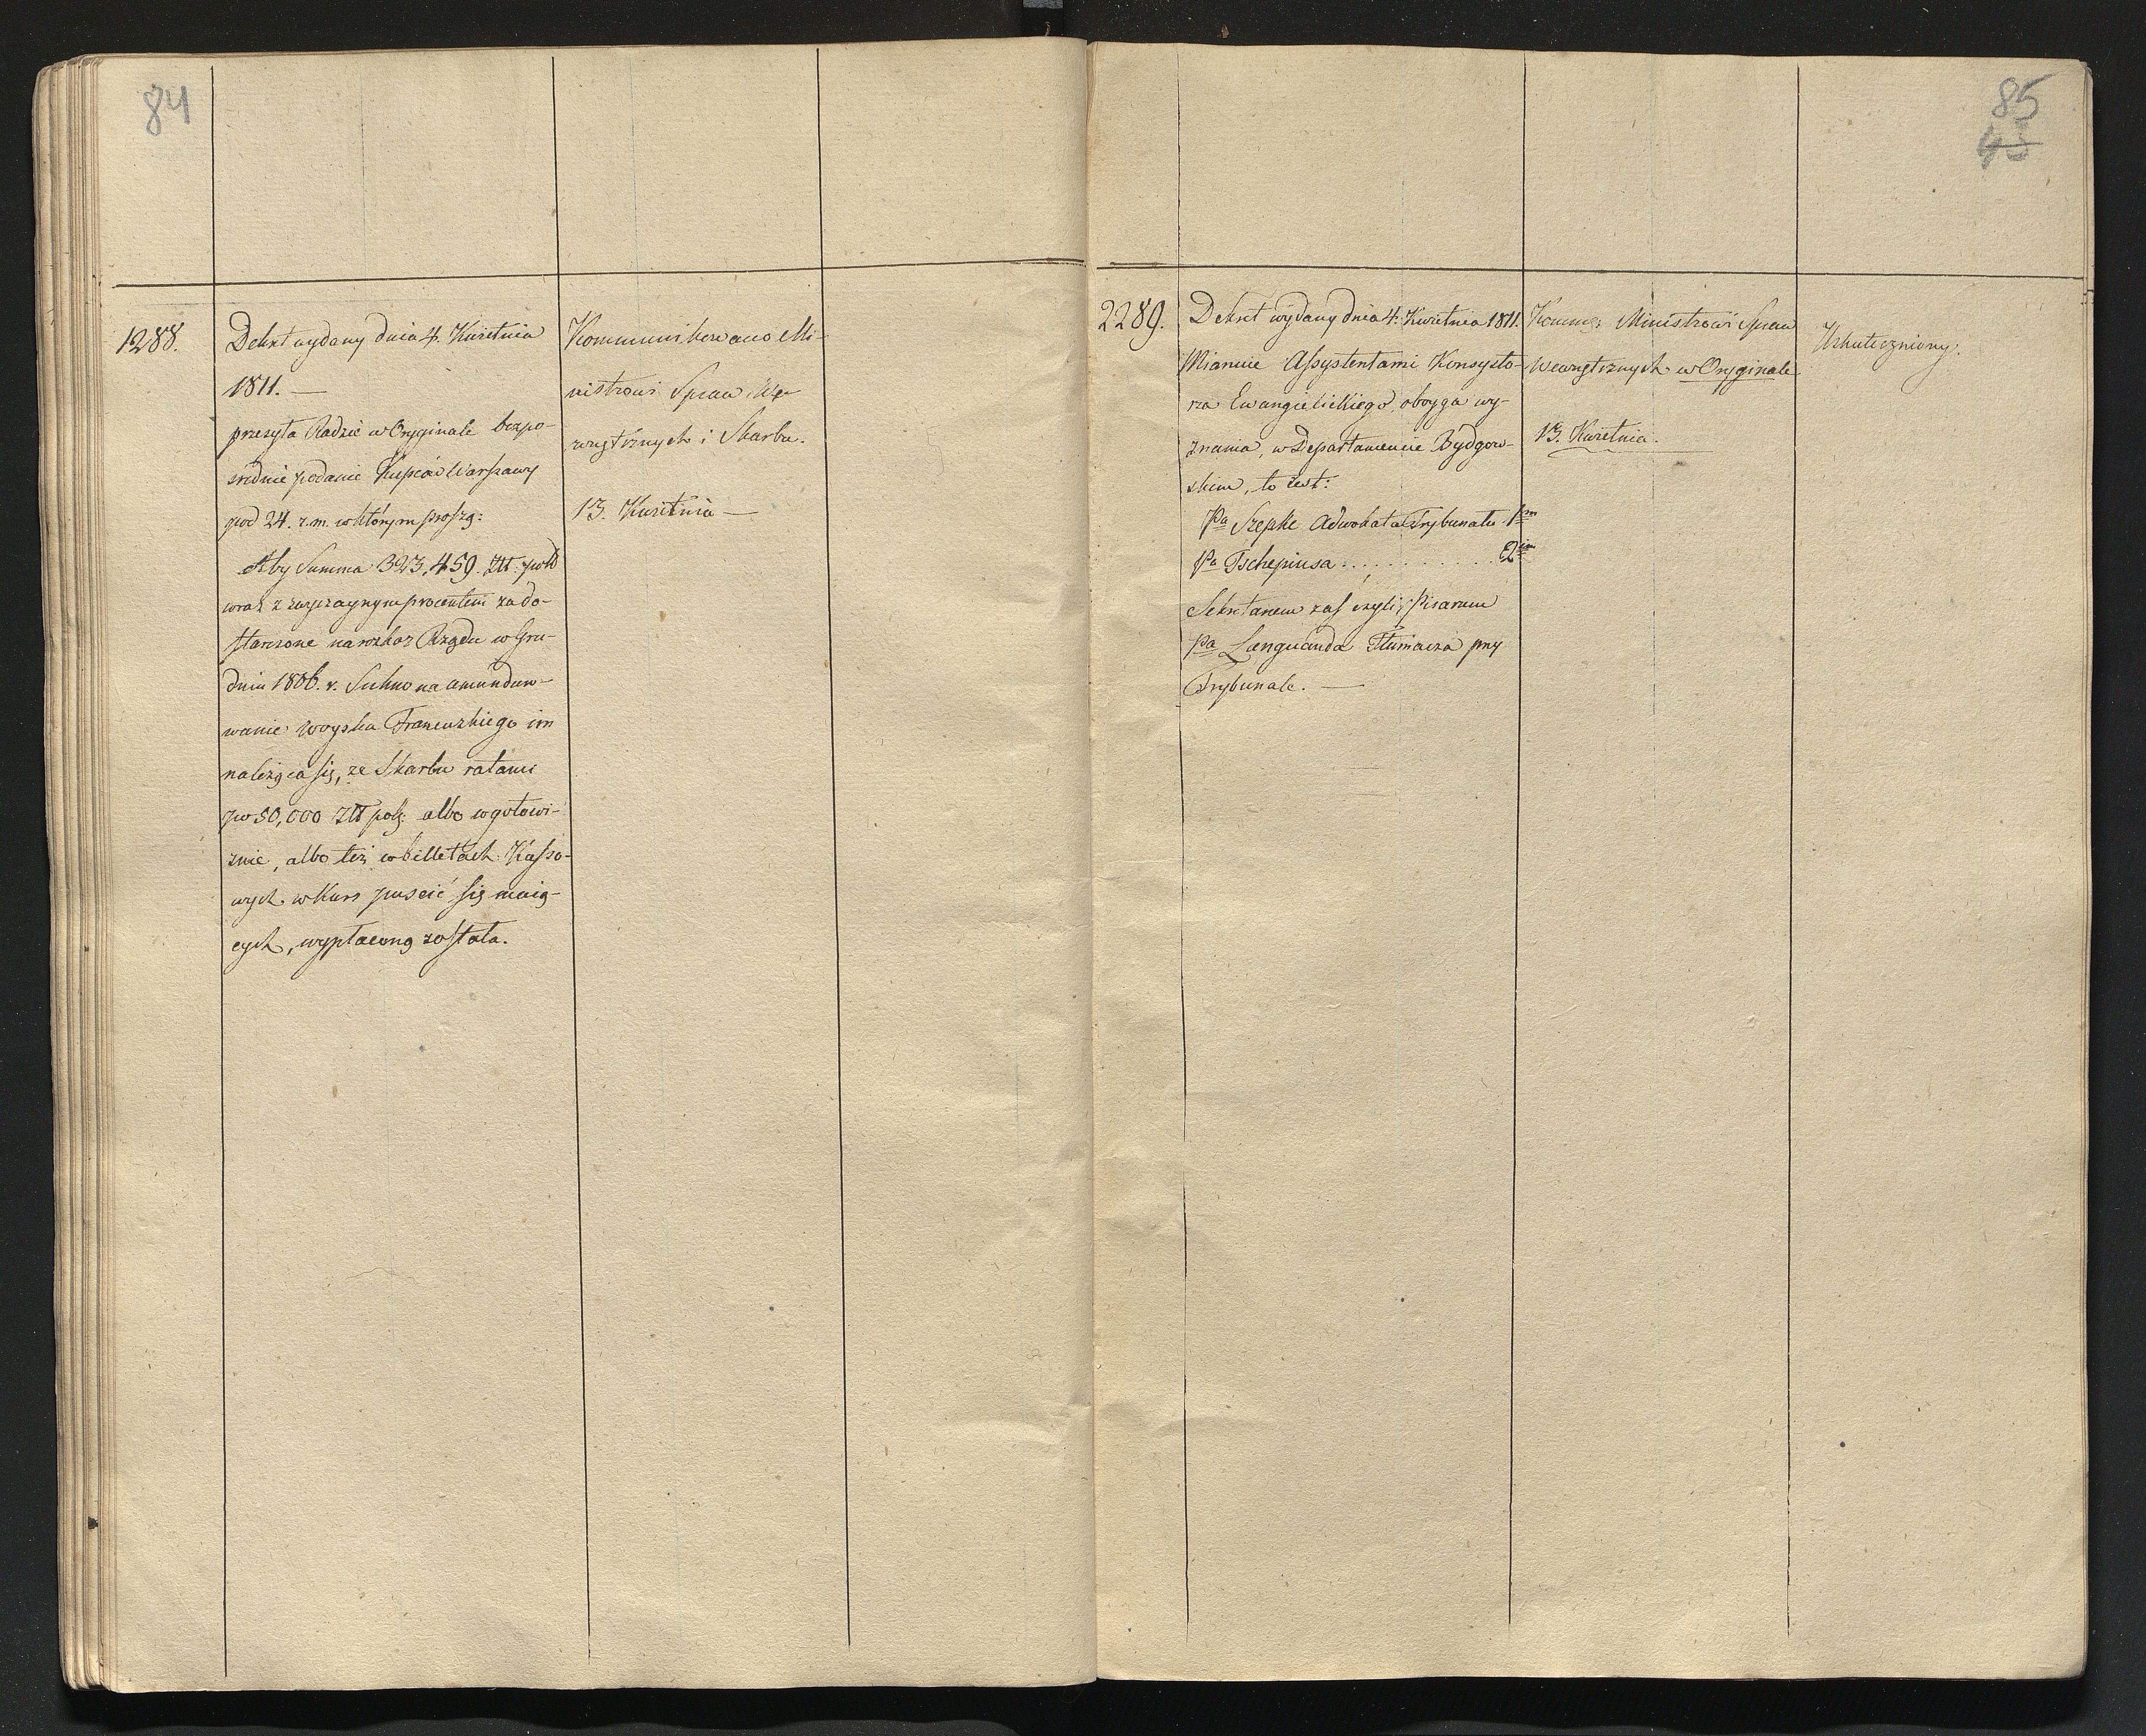 84
1288.
Dekret wydany dnia 4. Kwietnia
1811. —
przesyła Radzie w Oryginale bezpo-
srednie podanie Kupców Warszawy
pod 24. z. m. w którym proszą:
Aby Summa 323,459. Złt: pols
wraz z zwyczaynym procentem za do-
starczone na rozkaz Rządu w Gru-
dniu 1806. r. Sukno na amundow-
wanie woyska Francuzkiego im
należąca się, ze Skarbu ratami
po 50,000 Złt pols: albo w gotowi-
znie, albo też w billetach Kasso-
wych w Kurs puscić się maią-
cych, wypłaconą została.
Kommunikowano Mi-
nistrowi Spraw We-
wnętrznych i Skarbu.
13. Kwietnia —
85
43
2289.
Dekret wydany dnia 4. Kwietnia 1811.
Mianuie Assystentami Konsysto-
rza Ewangielickiego, oboyga wy-
znania, w Departamencie Bydgow-
skim, to iest:
Pa Szepke Adwokata Trybunału 1m
Pa Tschepiusa . . . . . . . . . . 2im
Sekretarzem zaś czyli Pisarzem
Pa Languanda Tłumacza przy
Trybunale. —
Kommu: Ministrowi Spraw
Wewnętrznych w Oryginale
13. Kwietnia.
Uskuteczniony.